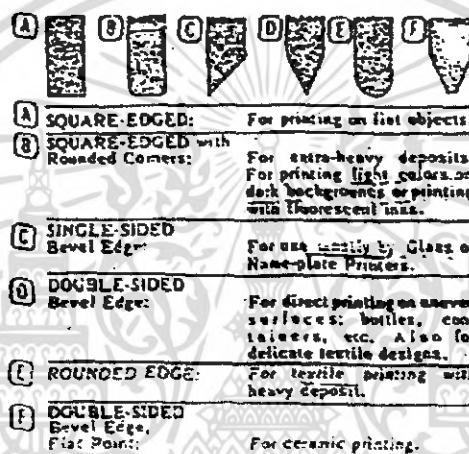 A B C D E F
A SQUARE-EDGED: For printing on flat objects
B SQUARE-EDGED with
Rounded Corners: For extra-heavy deposits.
For printing light colors on
dark backgrounds or printing
with fluorescent inks.
C SINGLE-SIDED
Bevel Edge: For use mostly by Glass o
Name-plate Printers.
D DOUBLE-SIDED
Bevel Edge: For direct printing on uneven
surfaces; bottles, con
tainers, etc. Also fo
delicate textile designs.
E ROUNDED EDGE: For textile printing with
heavy deposit.
F DOUBLE-SIDED
Bevel Edge,
Flat Point: For ceramic printing.